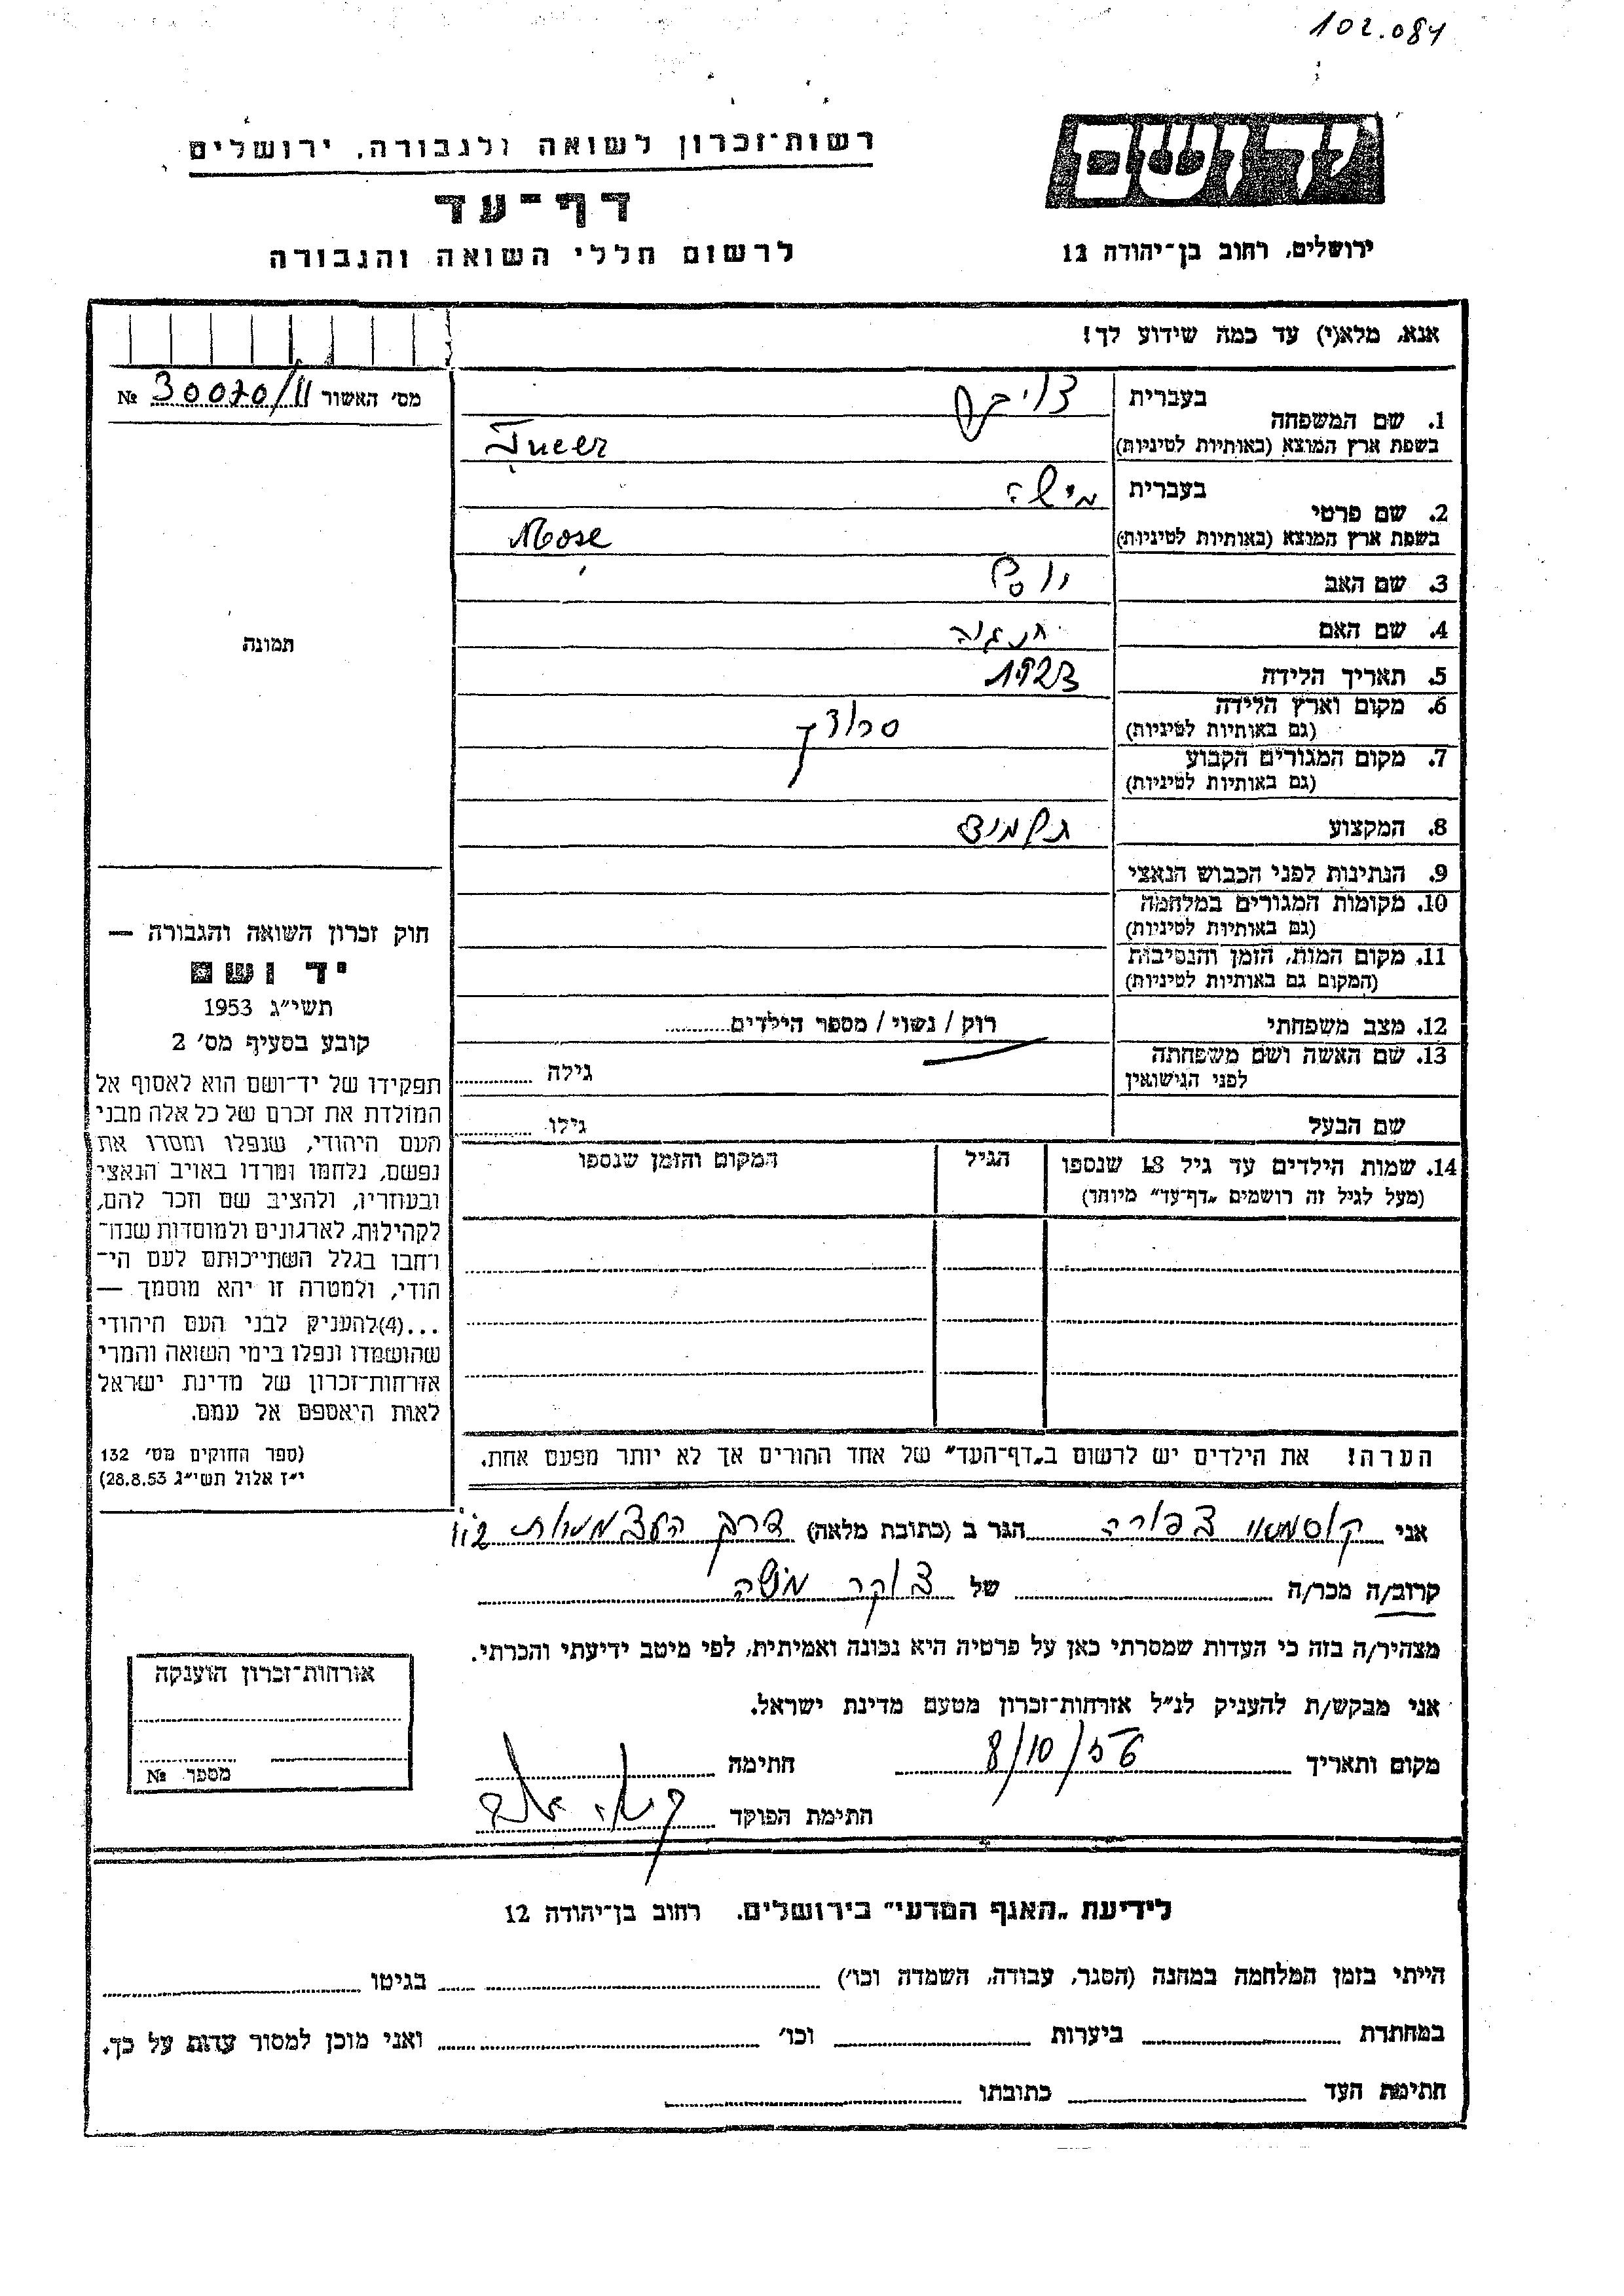 102.084
יד ושם
רשות־זכרון לשואה ולגבורה, ירושלים
דף־עד
לרשום חללי השואה והגבורה
ירושלים, רחוב בן־יהודה 12
אנא, מלא(י) עד כמה שידוע לך!
מס׳ האשור 30070/11 №
תמונה
חוק זכרון השואה והגבורה —
יד ושם
תשי״ג 1953
קובע בסעיף מס׳ 2
תפקידו של יד־ושם הוא לאסוף אל
המולדת את זכרם של כל אלה מבני
העם היהודי, שנפלו ומסרו את
נפשם, נלחמו ומרדו באויב הנאצי
ובעוזריו, ולהציב שם וזכר להם,
לקהילות, לארגונים ולמוסדות שנח־
רחבו בגלל השתייכותם לעם הי־
הודי, ולמטרה זו יהא מוסמך —
...(4)להעניק לבני העם היהודי
שהושמדו ונפלו בימי השואה והמרי
אזרחות־זכרון של מדינת ישראל
לאות היאספם אל עמם.
(ספר החוקים מס׳ 132
י״ז אלול תשי״ג 28.8.53)
1. שם המשפחה בעברית
בשפת ארץ המוצא (באותיות לטיניות)
2. שם פרטי בעברית
בשפת ארץ המוצא (באותיות לטיניות) Mose
3. שם האב יוסף
4. שם האם
5. תאריך הלידה 1923
6. מקום וארץ הלידה
(גם באותיות לטיניות)
7. מקום המגורים הקבוע
(גם באותיות לטיניות)
8. המקצוע תלמיד
9. הנתינות לפני הכבוש הנאצי
10. מקומות המגורים במלחמה
(גם באותיות לטיניות)
11. מקום המות, הזמן והנסיבות
(המקום גם באותיות לטיניות)
12. מצב משפחתי רוק / נשוי / מספר הילדים
13. שם האשה ושם משפחתה
לפני הנישואין גילה
שם הבעל גילו
14. שמות הילדים עד גיל 18 שנספו הגיל המקום והזמן שנספו
(מעל לגיל זה רושמים „דף־עד״ מיוחד)
הערה! את הילדים יש לרשום ב„דף־העד״ של אחד ההורים אך לא יותר מפעם אחת.
אני צפורה הגר ב (כתובת מלאה) דרך העצמאות
קרוב/ה מכר/ה של צוקר משה
מצהיר/ה בזה כי העדות שמסרתי כאן על פרטיה היא נכונה ואמיתית, לפי מיטב ידיעתי והכרתי.
אני מבקש/ת להעניק לנ״ל אזרחות־זכרון מטעם מדינת ישראל.
מקום ותאריך 8/10/56 חתימה
חתימת הפוקד
אזרחות־זכרון הוענקה
מספר №
לידיעת „האגף המדעי״ בירושלים, רחוב בן־יהודה 12
הייתי בזמן המלחמה במחנה (הסגר, עבודה, השמדה וכו׳) בגיטו
במחתרת ביערות וכו׳ ואני מוכן למסור עדות על כך.
חתימת העד כתובתו